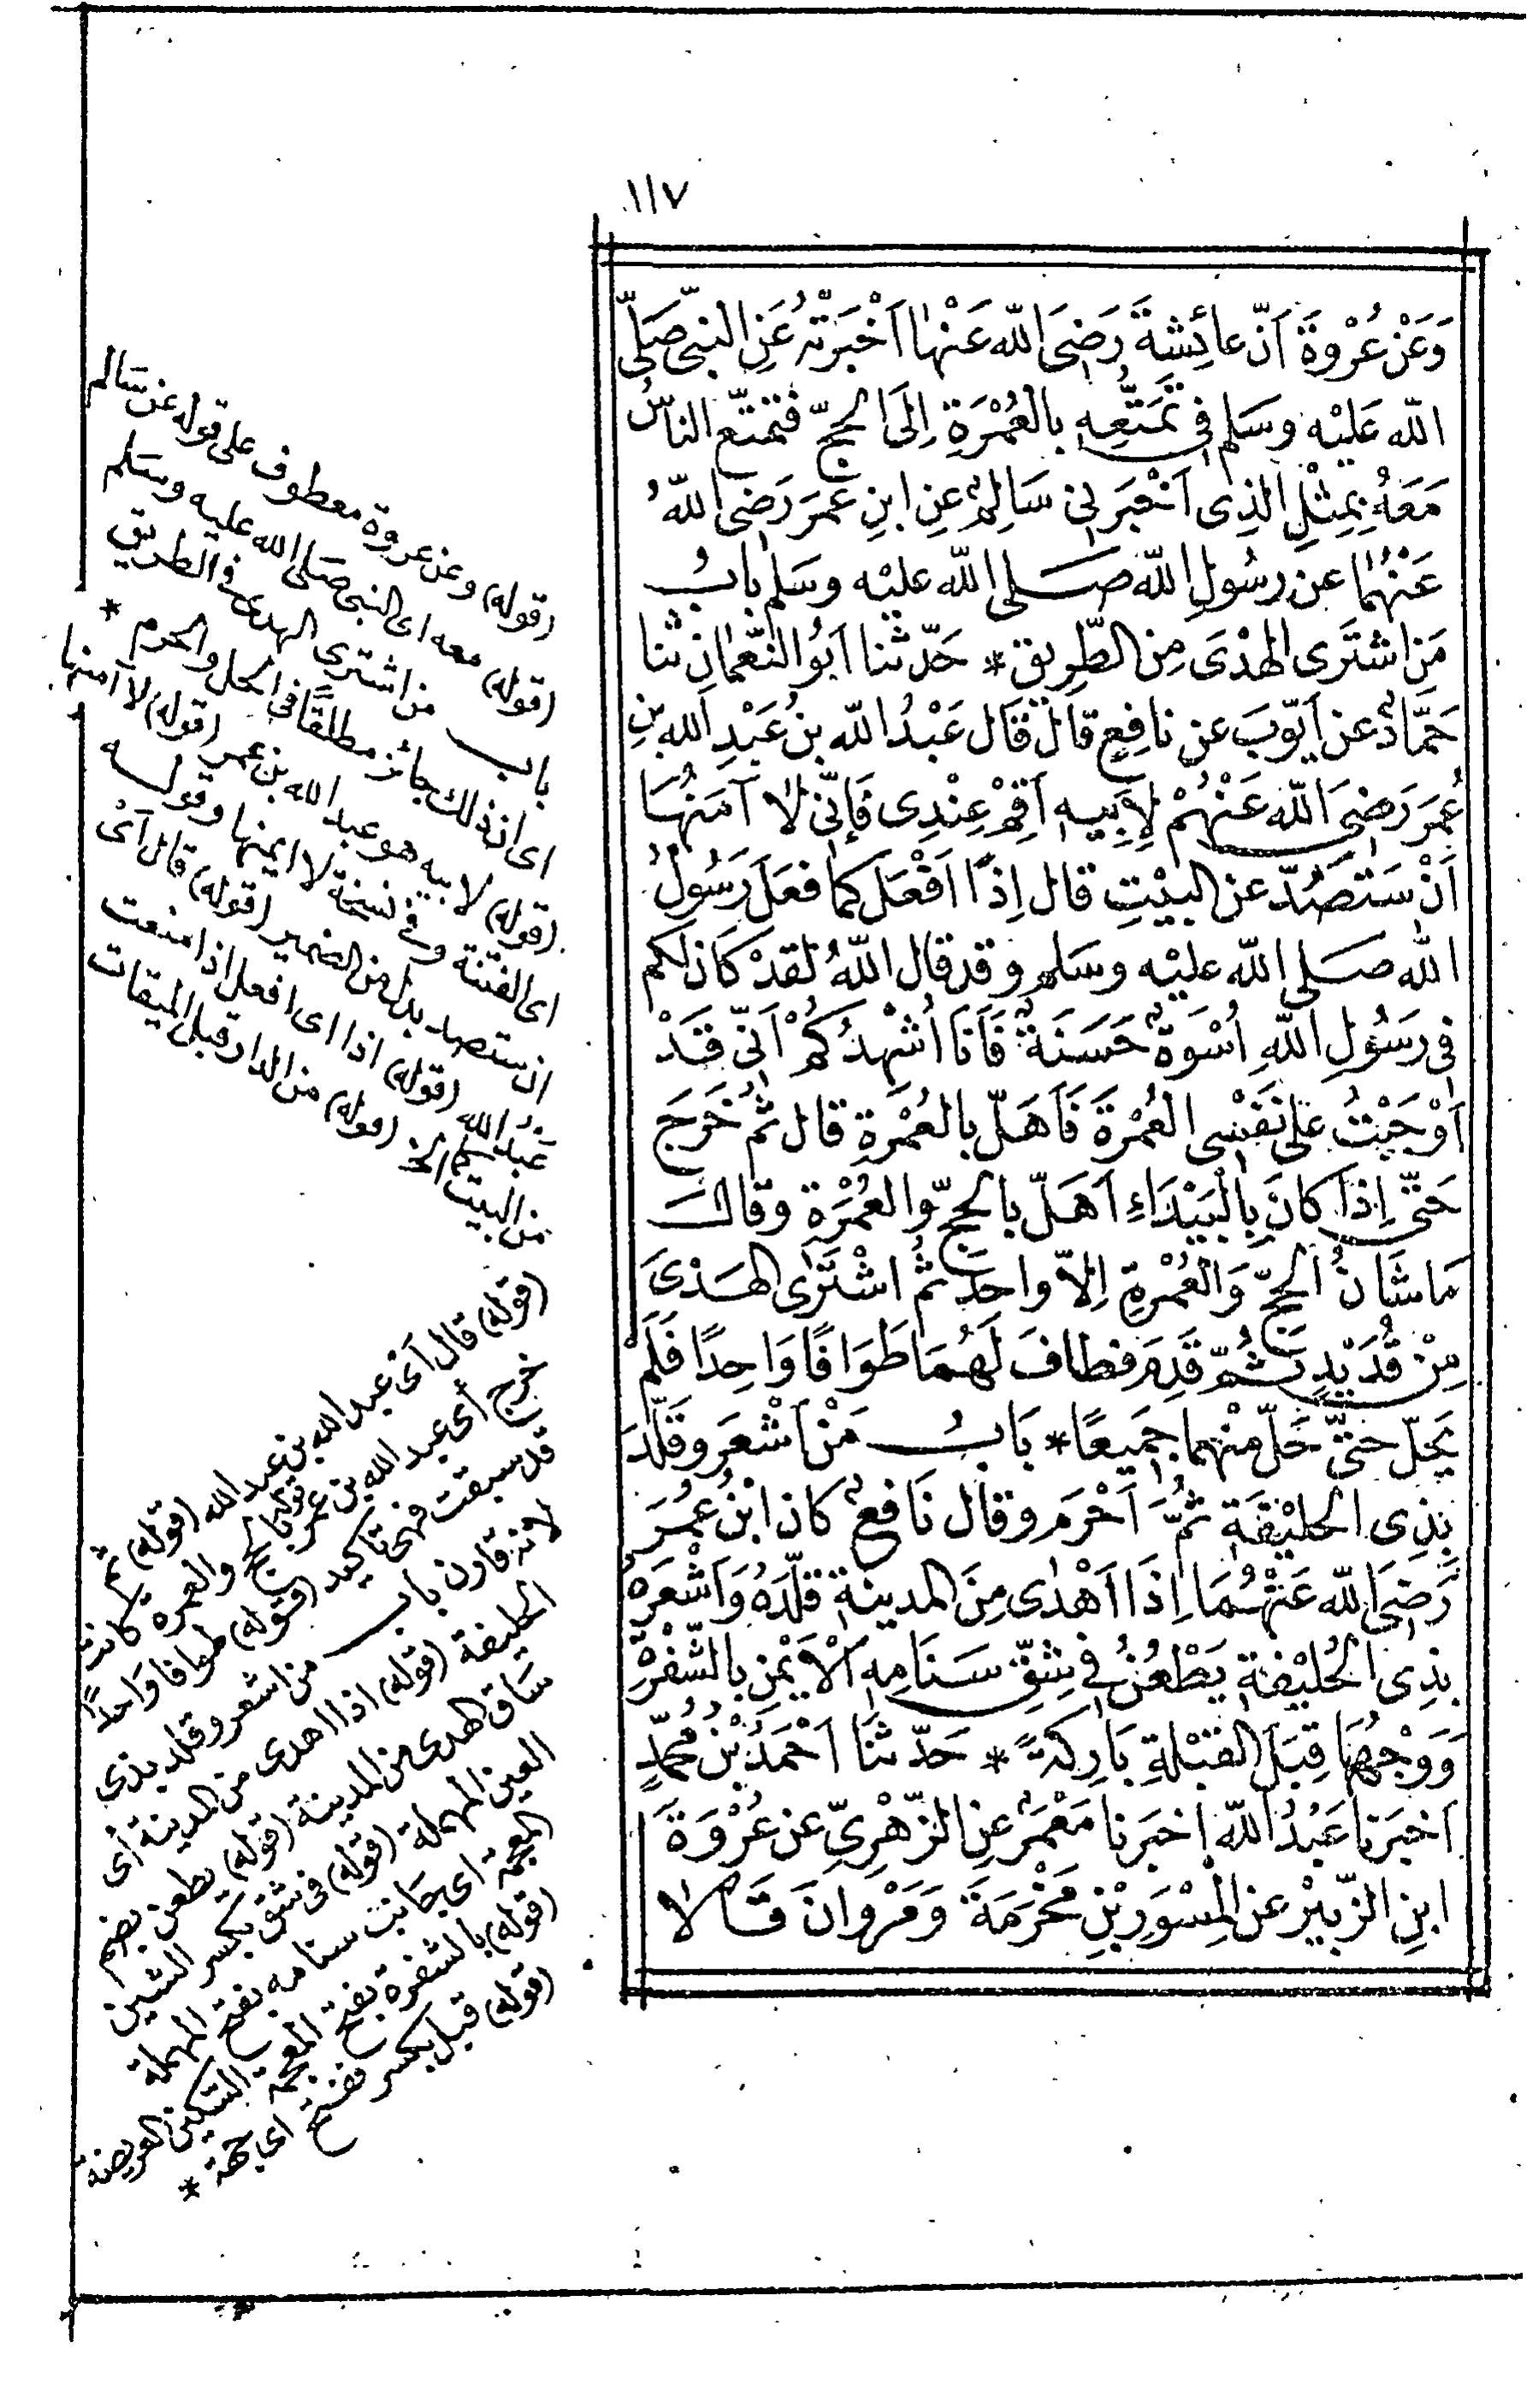 ١١٧
وَعَنْ عُرْوَةَ اَنّ عائِشةَ رَضِىَ اللّه عَنْهَا اَخْبَرَتْهُ عَنِ النبىّ صَلىّ
اللّه عَليْه وسَلم فى تَمَتُّعِه بالعُمْرَةِ اِلَى الحجّ فتمتّع الناسُ
مَعَهُ بِمِثْلِ الذِى اَخْبَرَنى سَالِمٌ عَنِ ابنِ عُمَرَ رَضى اللّهُ
عَنْهُمَا عن رسُولِ اللّه صَلى اللّه عليْه وسَلم بابُ
مَنِ اشتَرَى الهدْىَ مِنَ الطّرِيق * حَدّثنا اَبُو النّعْمانِ ثنا
حَمَّادٌ عن اَيّوبَ عن نافِعٍ قال قَال عَبْدُ اللّه بنُ عَبْدِ الله بنِ
عُمَرَ رَضِىَ اللّه عَنْهُمْ لِاَبِيهِ اَقِمْ عِنْدِى فَاِنّى لا آمَنُهَا
اَنْ سَتُصَدّ عن البيْتِ قال اِذًا اَفْعَل كما فعَلَ رَسُولُ
الله صَلى اللّه عليْه وسَلم وقد قال اللّهُ لقدْ كَانَ لكم
فى رَسُولِ اللّهِ اُسْوَةٌ حَسَنَةٌ فَاَنَا اُشْهِدُكُمْ اَنّى قَدْ
اَوْجَبْتُ عَلى نَفسِى العُمْرَةَ فَاَهَلّ بالعُمْرَةِ قال ثم خَرَجَ
حَتّى اِذَا كانَ بِالْبَيْدَاءِ اَهَلّ بالحجّ والعُمْرَةِ وقال
مَا شَانُ الحجّ وَالعُمْرَةِ اِلاّ واحِدٌ ثُم اشْتَرَى الهَدْىَ
مِنْ قُدَيْدٍ ثُمّ قَدِمَ فطافَ لَهُمَا طَوَافًا وَاحِدًا فَلَمْ
يَحِلّ حتىّ حَلّ مِنْهما جَمِيعًا * بَابُ مَنْ اَشْعَرَ وقَلّدَ
بِذِى الحليْفَةِ ثُمَّ اَحْرَمَ وقال نَافِعٌ كان ابْنُ عُمَرَ
رَضِىَ اللّه عَنْهُمَا اِذَا اَهْدَى مِنَ المدينَةِ قلّدَهُ وَاَشْعَرَهُ
بذِى الحُليْفةِ يَطْعُنُ فى شِقّ سَنَامِهِ اَلْاَيْمَنِ بالشّفْرَةِ
وَوَجْهُهَا قِبَلَ القبْلةِ بَارِكَةً * حَدّثنَا اَحْمَدُ بْنُ مُحمّدٍ
اَخبَرَنا عَبْدُ اللّه اَخبَرنا مَعْمَرٌ عنِ الزّهْرِىّ عن عُرْوَةَ
ابنِ الزّبيْر عن المِسْوَرِ بْنِ مَخْرَمَةَ وَمَرْوانَ قَالا
(قوله) وعن عروة معطوف على قوله عن سالم
(قوله) معه اى النبى صلى الله عليه وسلم
باب من اشترى الهدى فى الطريق
اى ان ذلك جائز مطلقًا فى الحل والحرم *
(قوله) لابيه هو عبد الله بن عمر (قوله) لا آمنها
اى الفتنة وفى نسخة لا ايمنها وقوله
ان ستصد بدل من الضمير (قوله) قال اَىْ
عَبدُ الله (قوله) اذا اى افعل اذا منعت
من البيت كما الخ (قوله) من الدار قبل الميقات
(قوله) قال اَى عبد الله بن عبد الله (قوله) ثم
خرج أى عبد الله بن عمر بالحج والعمرة كانت
قد سبقت فهى تاكيد (قوله) طوافا واحدًا
لانه قارن باب من اشعر وقلد بذى
الحليفة (قوله) اذا اهدى من المدينة أى
ساق الهدى من المدينة (قوله) يطعن بضم
العين المهملة (قوله) فى شق بكسر الشين
المعجمة اى جانب سنامه بفتح المهملة
(قوله) بالشفرة بفتح المعجمة السكين العريضة
(قوله) قبل بكسر ففتح اى جهة *